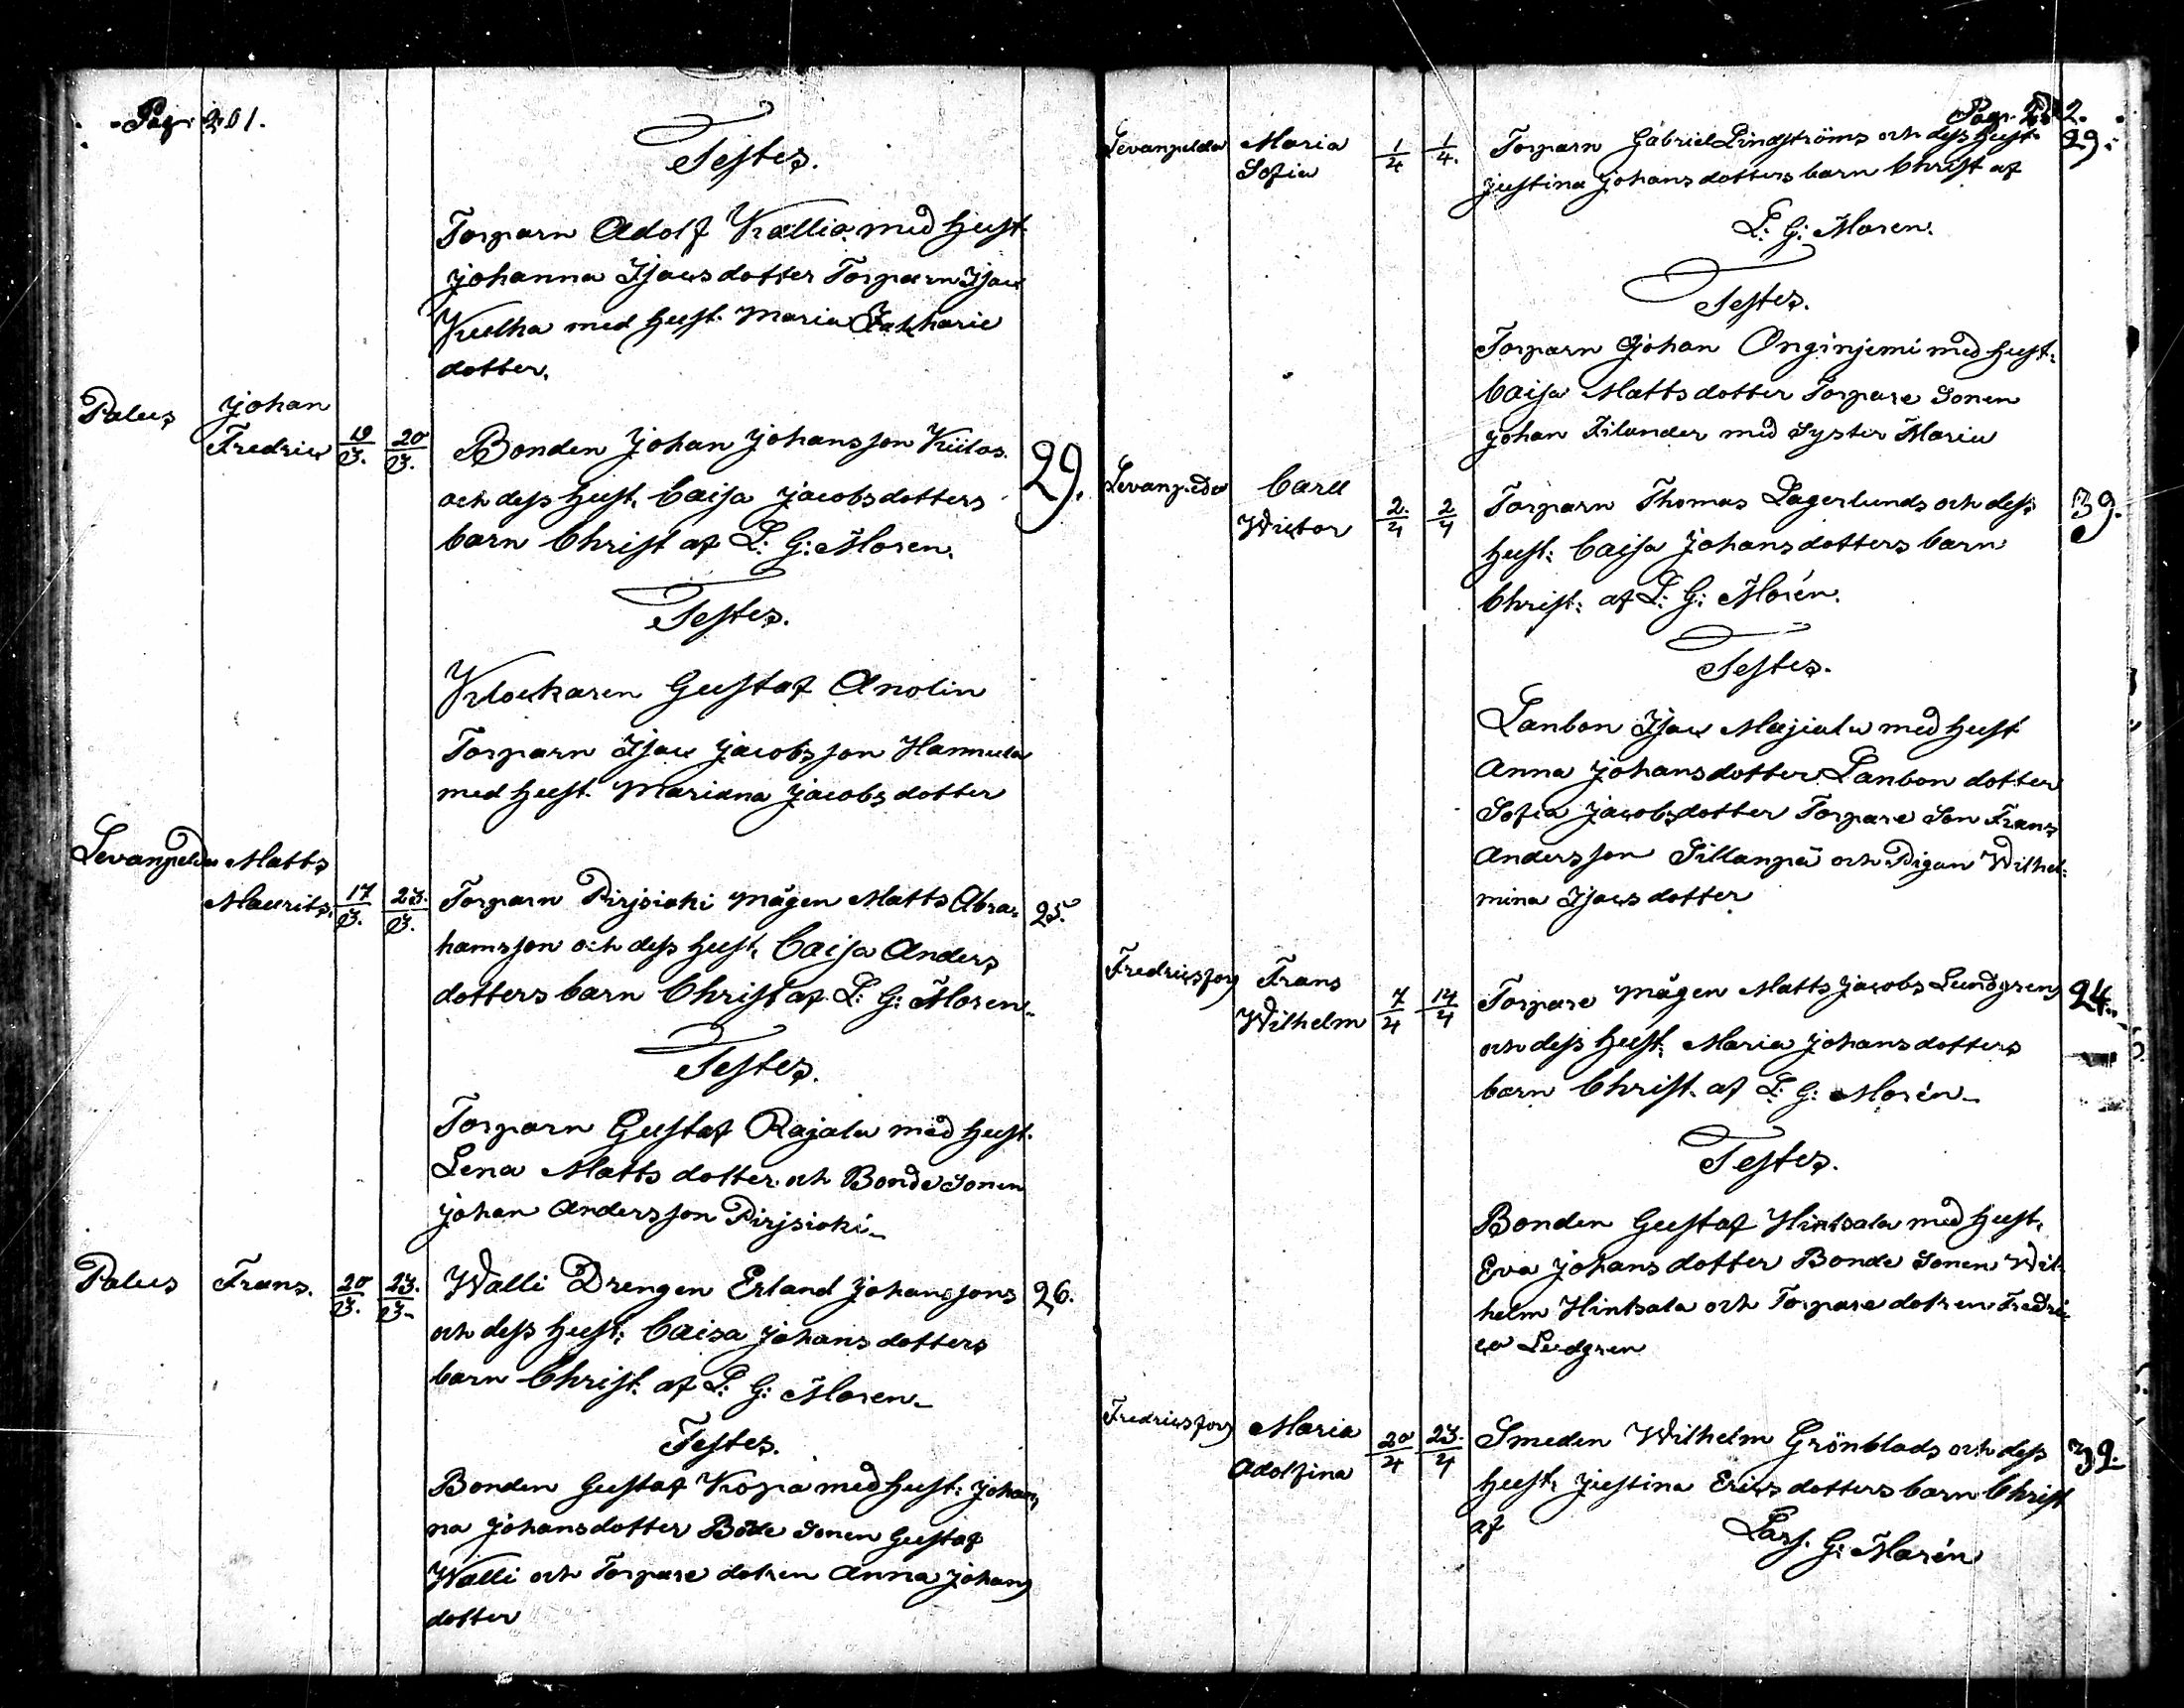 Pag: 201.
Testes.
Torparn Adolf Kallia med hust.
Johanna Isacsdotter Torparn Isac
med hust. Maria Zakharie
dotter.
Palus Johan
Fredric 19/3. 20/3. Bonden Johan Johansson Kiilas 29.
och dess hust. Caisa Jacobsdotters
barn Christ af L: G: Moren.
Testes.
Klockaren Gustaf Anolin
Torparn Isac Jacobsson Hannula
med hust. Mariana Jacobs dotter
Levanpelda Matts
Maurits 17/3. 23./3. Torparn Pirjsioki mågen Matts Abra= 25.
hamsson och dess hust. Caisa Anders
dotters barn Christ af L: G: Moren.
Testes.
Torparn Gustaf Rajala med hust.
Lena Matts dotter och Bonde Sonen
Johan Andersson Pirjsioki
Palus Frans. 20/3. 23./3. Walli Drengen Erland Johanssons 26.
och dess hust: Caisa Johans dotters
barn Christ. af L: G: Moren.
Testes.
Bonden Gustaf Kopa med hust: Johan,
na Johansdotter Bode Sonen Gustaf
Walli och Torpare dotren Anna Johans
dotter
Pagr. 2
Levanpelda Maria 1/4 1/4. Torparn Gabriel Lindströms och dess hust. 29.
Sofia Justina Johansdotters barn Christ af
L: G: Moren.
Testes.
Torparn Johan Onginjemi med hust:
Caisa Mattsdotter Torpare Sonen
Johan Filander med Syster Maria
Levanpelda Carll
Wictor 2./4 2/4 Torparn Thomas Lagerlunds och dess 39.
hust: Caisa Johansdotters barn
Christ: af L: G: Morén.
Testes.
Lanbon Isac Majiala med hust
Anna Johansdotter Lanbon dotter
Sofia Jacobsdotter Torpare Son Frans
Andersson Sillanpä och Pigan Wilhel=
mina Isacsdotter
Fredricsfors Frans
Wilhelm 7/4 14/4 Torpare mågen Matts Jacobs Lundgrens 24.
och dess hust: Maria Johansdotters
barn Christ. af L: G: Morén
Testes.
Bonden Gustaf Hinksala med hust.
Eva Johansdotter Bonde Sonen Wil=
helm Hinksala och Torpare dotren Fredri=
ca Ludgren
Fredricsfors Maria
Adolfina 20/4 23./4 Smeden Wilhelm Grönblads och dess 39.
hust: Justina Ericsdotters barn Christ
af Lars. G: Morén